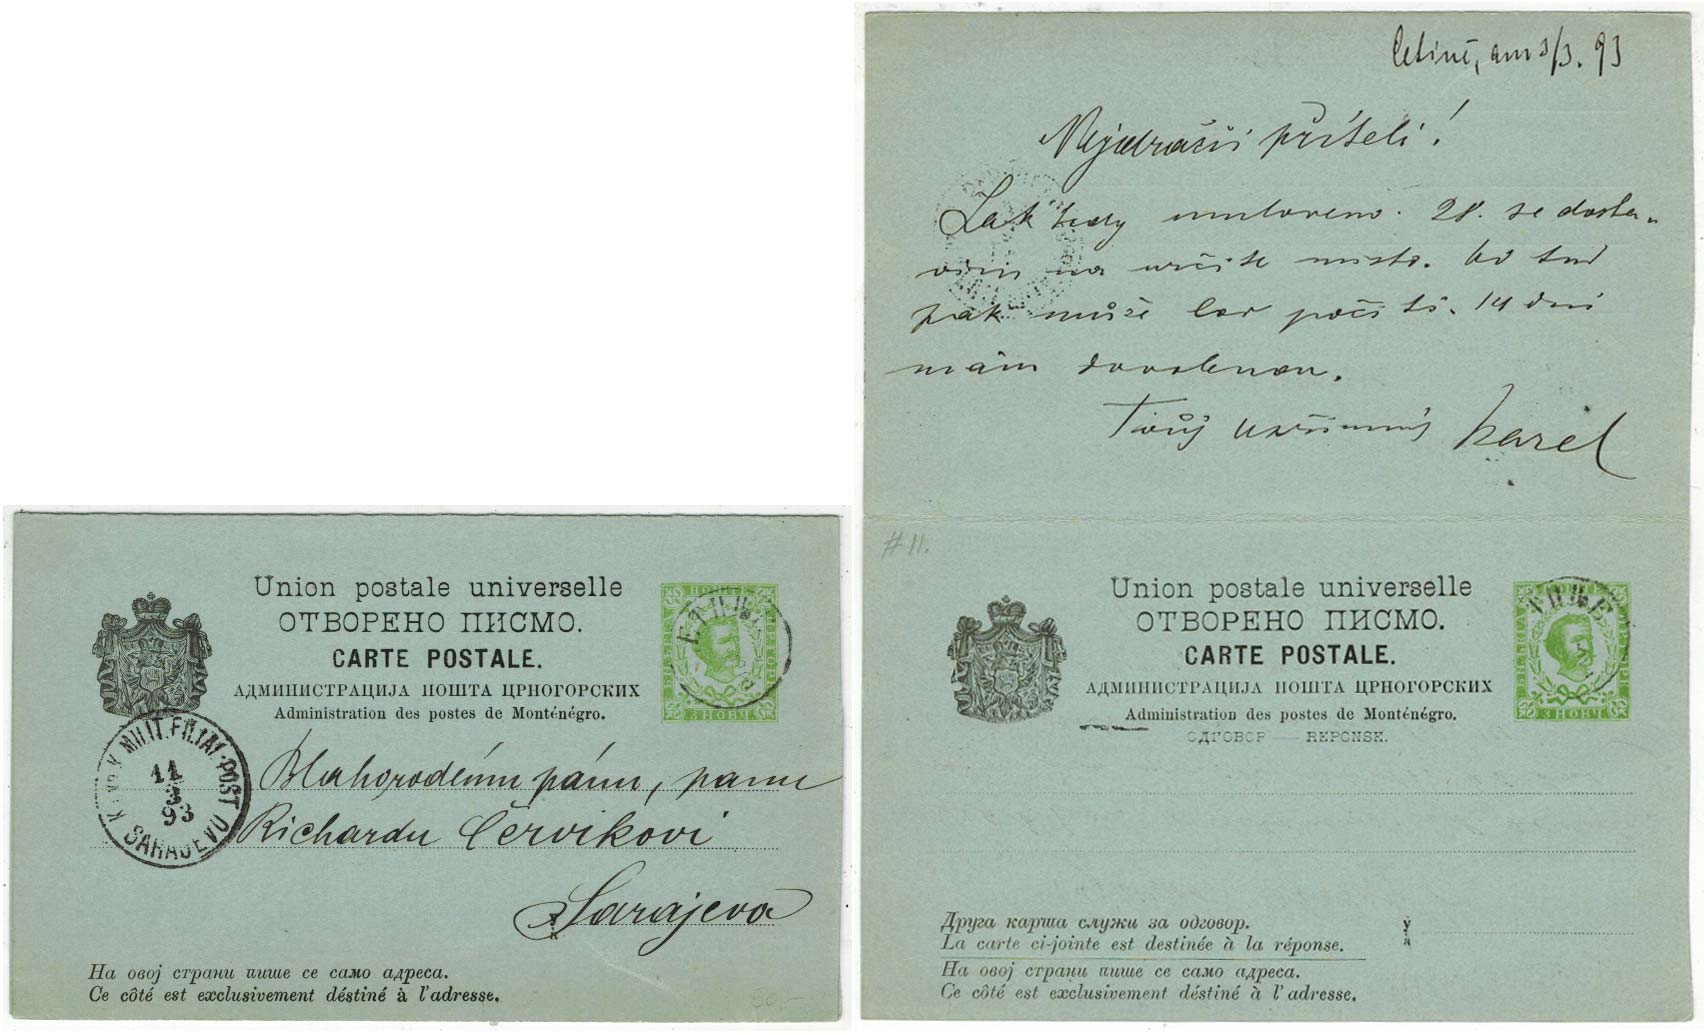 Union postale universelle
ОТВОРЕНО ПИСМО.
CARTE POSTALE.
АДМИНИСТРАЦИЈА ПОШТА ЦРНОГОРСКИХ
Administration des postes de Monténégro.
3 НОВЧ
MILIT. FILIAL-POST
11
3
93
SARAJEVO
Blahorodému pánu, panu
Richardu Červikovi
Sarajevo
На овој страни пише се само адреса.
Ce côté est exclusivement déstiné à l'adresse.
50,-
Cetině, am 3/3. 93
Nejdražší příteli!
Tak tedy umluveno. 28. se dosta-
vím na určité místo.
pak může počíti. 14 dní
mám dovolenou.
Tvůj upřímný Karel
#11.
Union postale universelle
ОТВОРЕНО ПИСМО.
CARTE POSTALE.
АДМИНИСТРАЦИЈА ПОШТА ЦРНОГОРСКИХ
Administration des postes de Monténégro.
ОДГОВОР — REPONSE.
3 НОВЧ
Друга карта служи за одговор.
La carte ci-jointe est destinée à la réponse.
На овој страни пише се само адреса.
Ce côté est exclusivement déstiné à l'adresse.